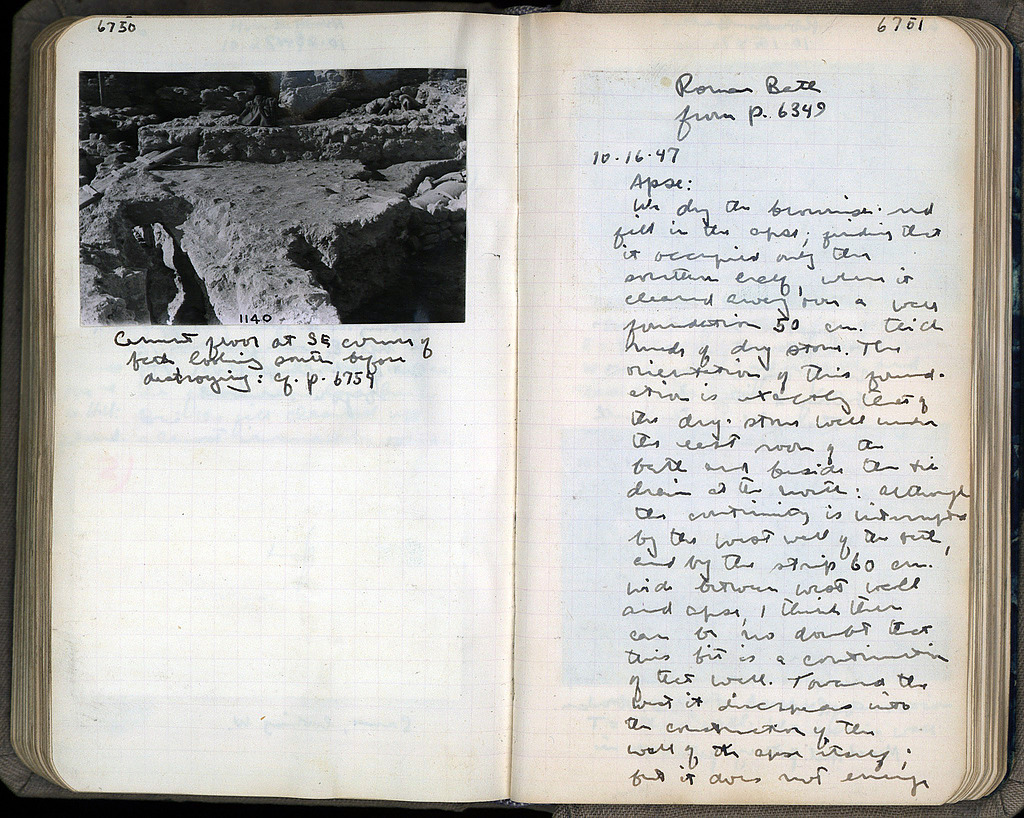 6750
1140
Cement floor at SE corner of
bath looking south before
destroying: cf. p. 6759
6751
Roman Bath
from p. 6349
10.16.47
Apse:
We dug the brownish-red
fill in the apse; finding that
it occupied only the
southern half, when it
cleared away from a wall
foundation 50 cm. thick
made of dry stone. The
orientation of this found-
ation is exactly that of
the dry-stone wall under
the east room of the
bath and beside the tile
drain at the north: although
the continuity is interrupted
by the west wall of the bath,
and by the strip 60 cm.
wide between west wall
and apse, I think there
can be no doubt that
this bit is a continuation
of that wall. Toward the
west it disappears into
the construction of the
wall of the apse itself;
but it does not emerge